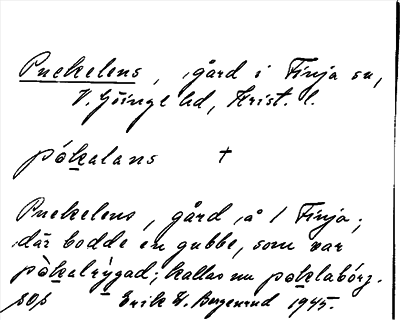 Puckelens, gård i Finja sn,
V. Göinge hd, Krist. l.
pókalans †
Puckelens, gård å 1 Finja;
där bodde en gubbe, som var
pòkalrýgad; kallas nu poklabórj.
sos Erik W. Bergenrud 1945.